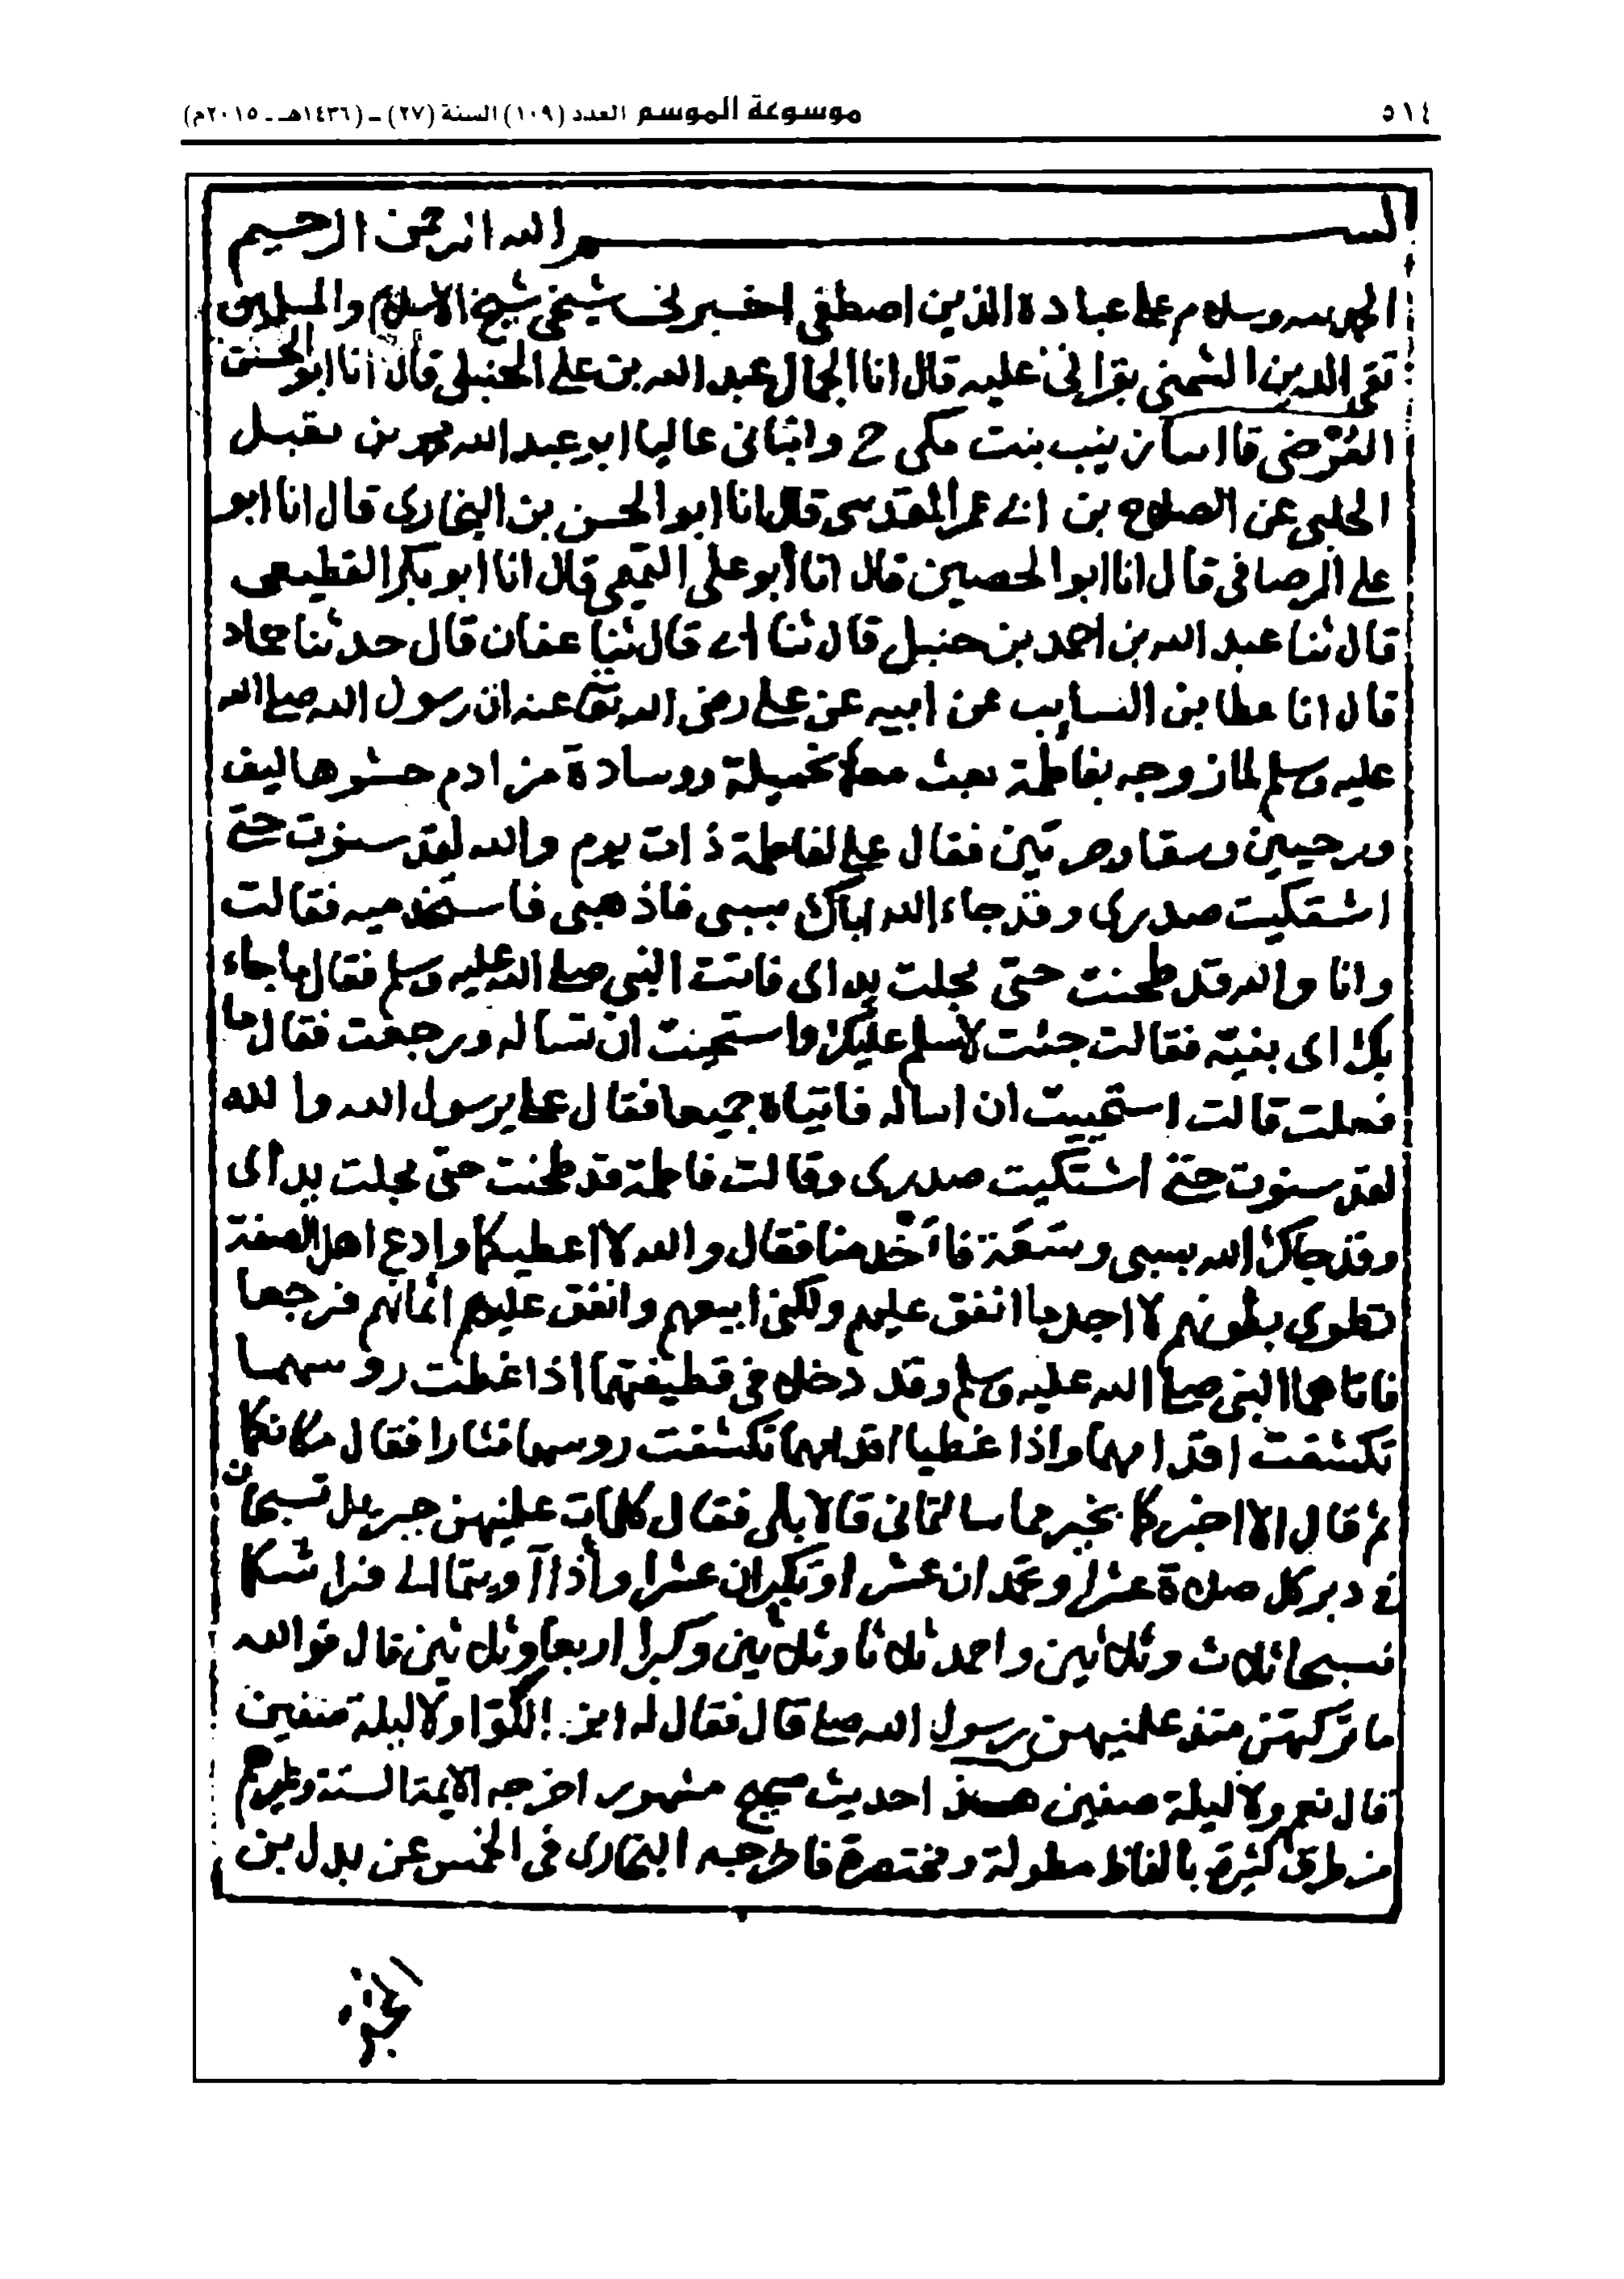 ٥١٤ موسوعة الموسم العدد (١٠٩) السنة (٢٧) - (١٤٣٦هـ - ٢٠١٥م)
بسم الله الرحمن الرحيم
الحمد لله وسلام على عباده الذين اصطفى اخبرني شيخي شيخ الاسلام والمسلمين
تقي الدين الشمني بقراتي عليه قال انا الجمال عبد الله بن علي الحنبلي قال انا ابو الحسن
العُرْضي قال زينب بنت مكي ح وانباني عاليا ابو عبد الله محمد بن مقبل
الحلبي عن الصلاح بن ابي عمر المقدسي قال انا ابو الحسن بن البخاري قال انا ابو
علي الرصافي قال انا ابو الحصين قال انا أبو علي التميمي قال انا ابو بكر القطيعي
قال ثنا عبد الله بن احمد بن حنبل قال ثنا ابي قال ثنا عفان قال حدثنا حماد
قال انا عطا بن السايب عن ابيه عن علي رضي الله تعالى عنه ان رسول الله صلى الله
عليه وسلم لما زوجه بفاطمة بعث معها بخميلة ووسادة من ادم حشوها ليف
ورحيين وسقا وجرتين فقال علي لفاطمة ذات يوم والله لقد سنوت حتى
اشتكيت صدري وقد جاء الله اباك بسبي فاذهبي فاستخدميه فقالت
وانا والله قد طحنت حتى مجلت يداي فاتت النبي صلى الله عليه وسلم فقال ما جاء
بك اي بنية فقالت جئت لاسلم عليك واستحيت ان تساله ورجعت فقال ما
فعلت قالت استحييت ان اساله فاتياه جميعا فقال علي يرسول الله والله
لقد سنوت حتى اشتكيت صدري وقالت فاطمة قد طحنت حتى مجلت يداي
وقد جاك الله بسبي وسَعَة فاَخدمنا فقال والله لا اعطيكما وادع اهل الصفة
تطوى بطونهم لا اجد ما انفق عليهم ولكني ابيعهم وانفق عليهم اثمانهم فرجعا
فاتاهما النبي صلى الله عليه وسلم وقد دخلا في قطيفتهما اذا غطت روسهما
تكشفت اقدامهما واذا غطيا اقدامهما تكشفت روسهما فثارا فقال مكانكما
ثم قال الا اخبركما بخير مما سالتماني قالا بلى فقال كلمات علمنيهن جبريل تسبحان
في دبر كل صلاة عشرا وتحمدان عشرا وتكبران عشرا واذا آويتما الى فراشكما
فسبحا ثلاث وثلاثين واحمدا ثلاثا وثلاثين وكبرا اربعا وثلاثين قال فوالله
ما تركتهن منذ علمنيهن رسول الله صلى قال فقال له ابن الكوّا ولا ليلة صفين
قال نعم ولا ليلة صفين هذا حديث صحيح مشهور اخرجه الايمة الستة وغيرهم
من طرق كثيرة بالفاظ مطولة ومختصرة فاخرجه البخاري في الخمس عن بدل بن